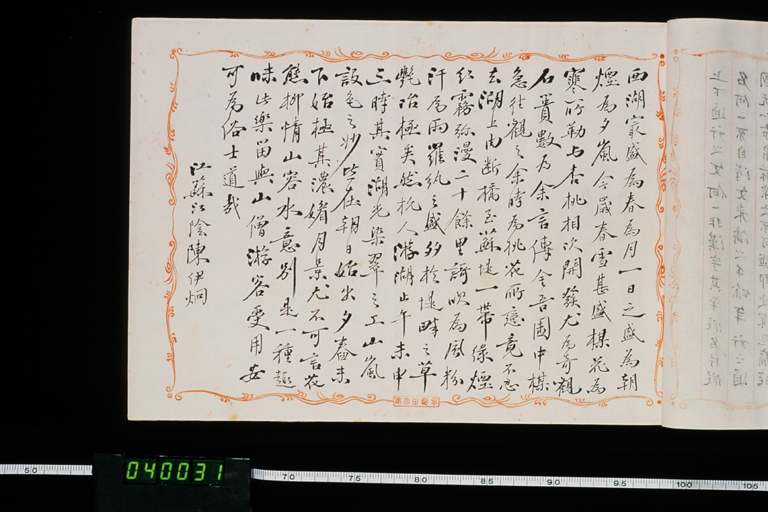 西湖最盛為春為月一日之盛為朝
煙為夕嵐今歲春雪甚盛楳花為
寒所勒与杏桃相次開發尤為奇觀
石簣數為余言傅金吾園中楳
急往觀之余時為桃花所戀竟不忍
去湖上由斷橋至蘇堤一帶綠煙
紅霧弥漫二十餘里謌吹為風粉
汗為雨羅紈之盛多於堤畔之草
艷冶極矣然杭人游湖止午未申
三時其實湖光染翠之工山嵐
設色之妙皆在朝日始出夕舂未
下始極其濃媚月景尤不可言花
態柳情山容水意別是一種趣
味此樂留與山僧游客受用安
可為俗士道哉
江蘇江陰陳伊炯
040031
50 70 75 80 85 90 95 100 105